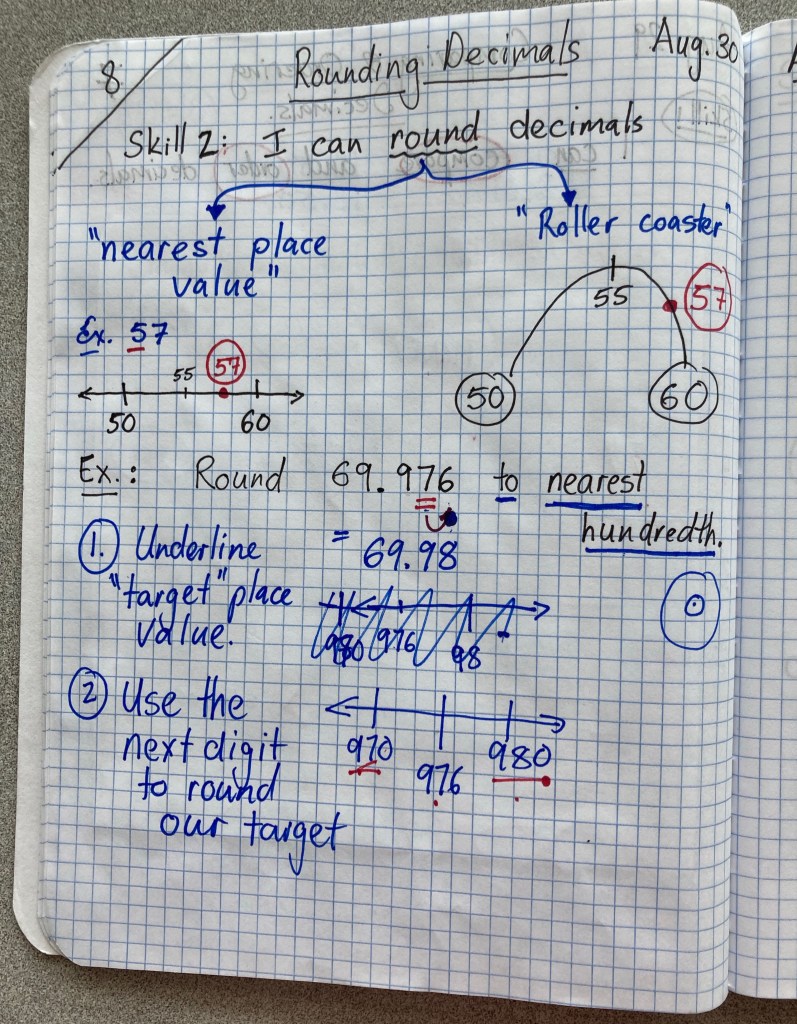 8
Rounding Decimals
Aug. 30
Skill 2: I can round decimals
"nearest place
value"
"Roller coaster"
55
57
50
60
Ex. 57
55
57
50
60
Ex.: Round 69.976 to nearest
hundredth.
= 69.98
1. Underline
"target" place
value.
976
98
2 Use the
next digit
to round
our target
970
976
980